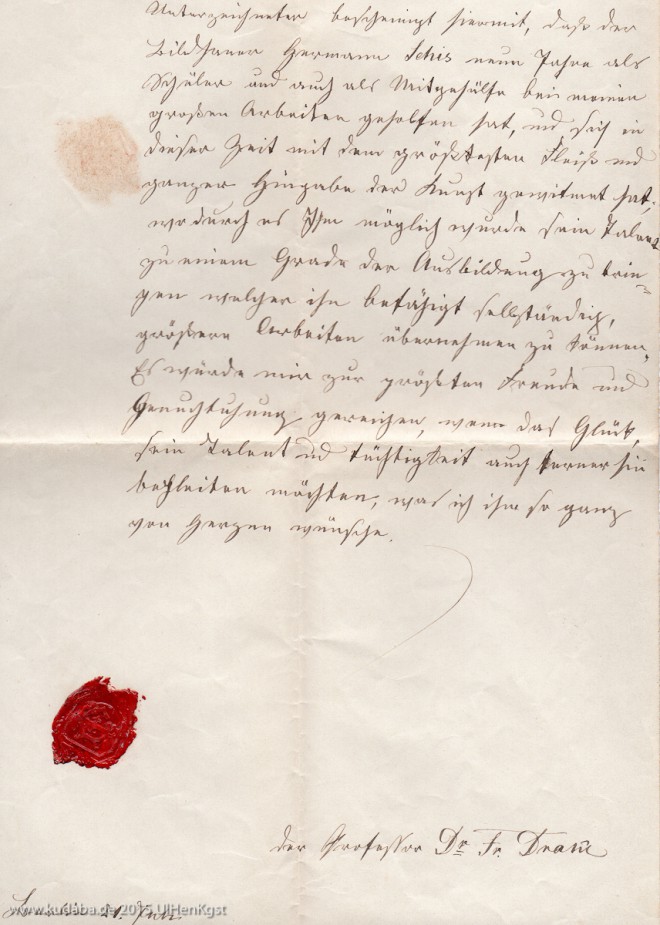 Unterzeichneter bescheinigt hiermit, daß der
Bildhauer Hermann Schis neun Jahre als
Schüler und auch als Mitgehülfe bei meinen
großen Arbeiten geholfen hat, und sich in
dieser Zeit mit dem größtesten Fleiß und
ganzer Hingabe der Kunst gewitmet hat,
wodurch es Ihm möglich wurde sein Talent
zu einem Grade der Ausbildung zu brin=
gen welcher ihn befähigt selbständig,
größere Arbeiten übernehmen zu können,
Es würde mir zur größten Freude und
Genuchtuhung gereichen, wenn das Glück,
sein Talent und Tüchtigkeit auch fernerhin
begleiten möchten, was ich ihm so ganz
von Herzen wünsche.
der Professor Dr. Fr. Drake
21. Juli
www.kudaba.de 2015 UlHenKgst